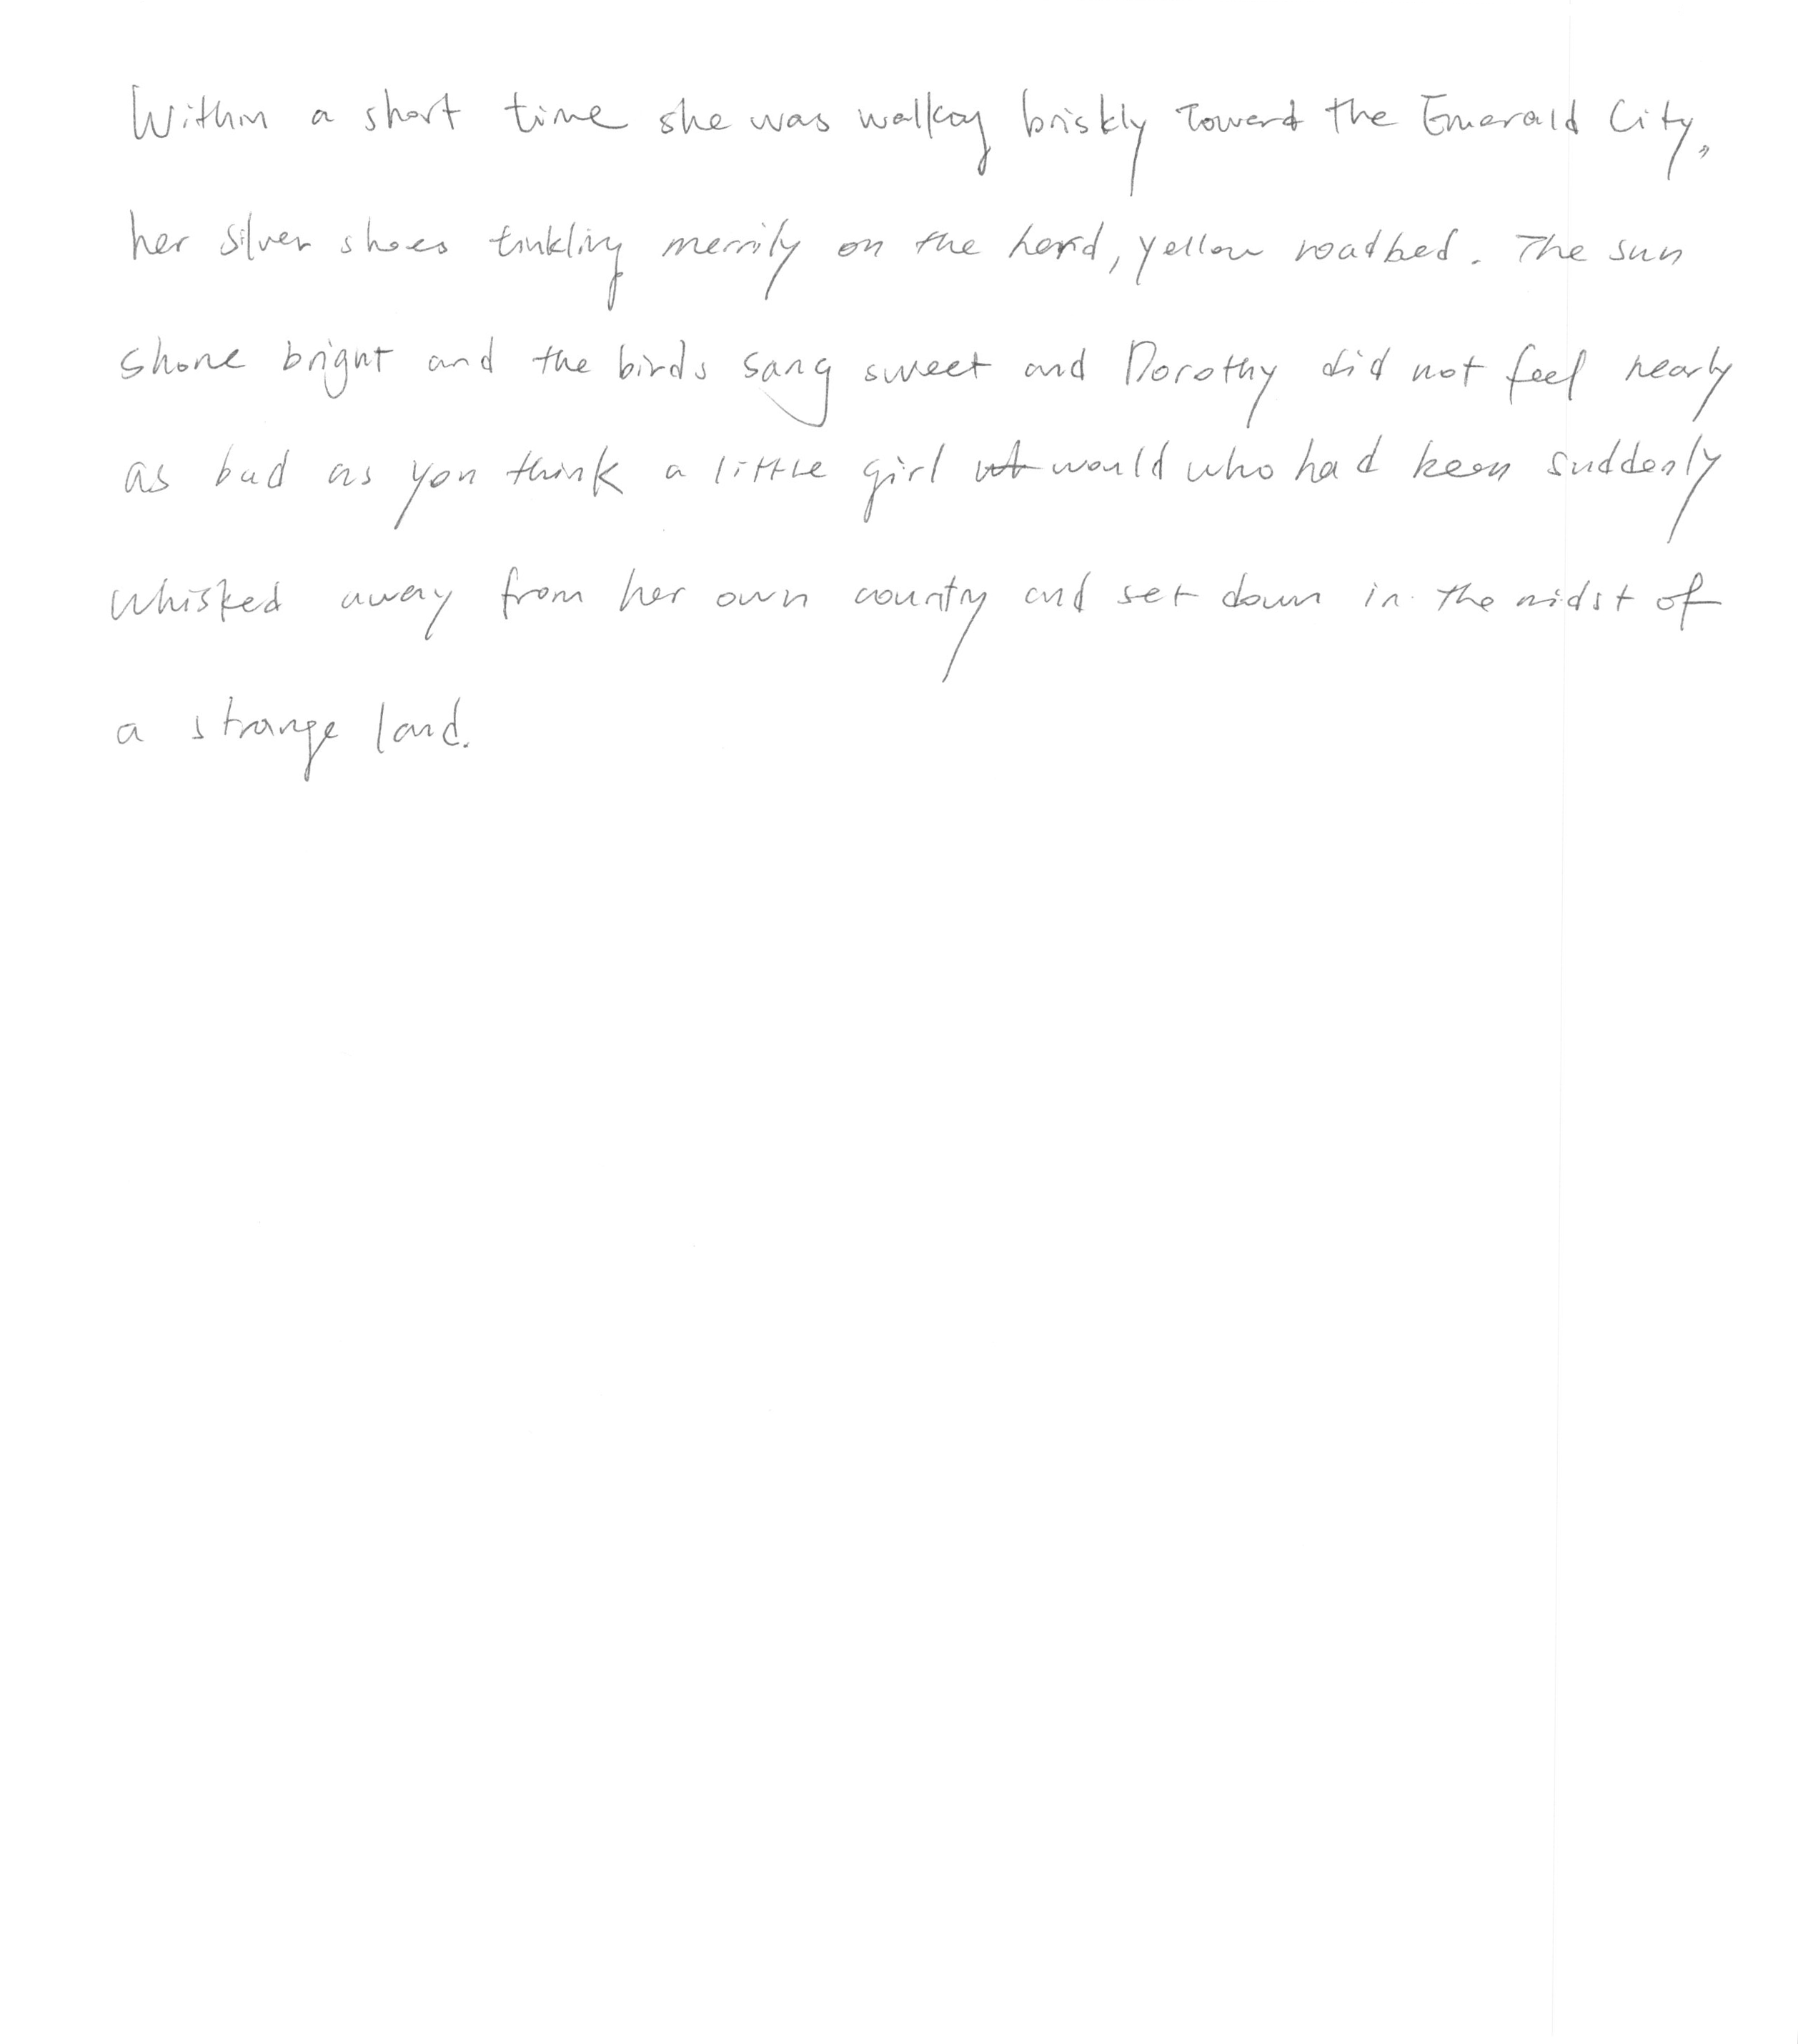 Within a short time she was walking briskly toward the Emerald City,
her silver shoes tinkling merrily on the hard, yellow roadbed. The sun
shone bright and the birds sang sweet and Dorothy did not feel nearly
as bad as you think a little girl would who had been suddenly
whisked away from her own country and set down in the midst of
a strange land.